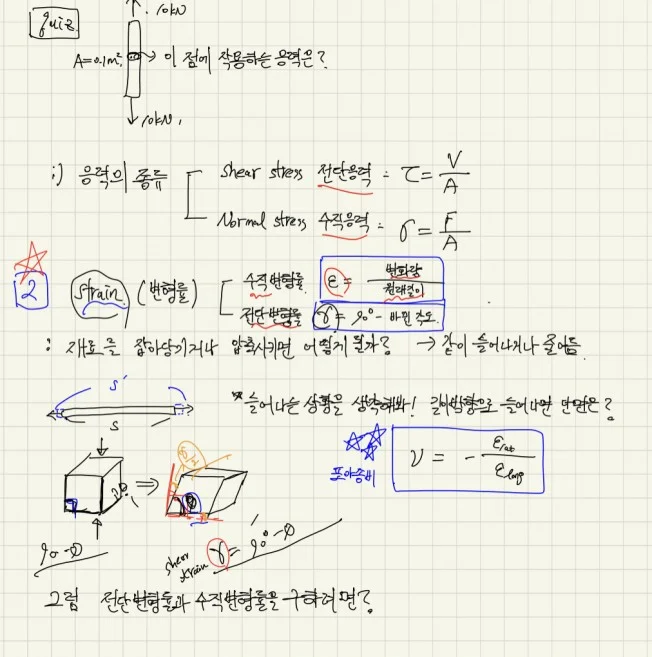 quiz.
10kN
A=0.1m². → 이 점에 작용하는 응력은?
10kN.
i) 응력의 종류
shear stress 전단응력 = τ = V/A
Normal stress 수직응력 = σ = F/A
2 strain (변형률)
수직변형률. ε = 변화량/원래길이
전단변형률 γ = 90° - 바뀐 각도.
: 재료를 잡아당기거나 압축시키면 어떻게 될까? → 같이 늘어나거나 줄어듦
s'
s
* 늘어나는 상황을 생각해봐! 길이방향으로 늘어나면 단면은?
포아송비 ν = - εlat/εlong
⇒
90-θ
shear strain γ = 90° - θ
그럼 전단변형률과 수직변형률을 구하려면?